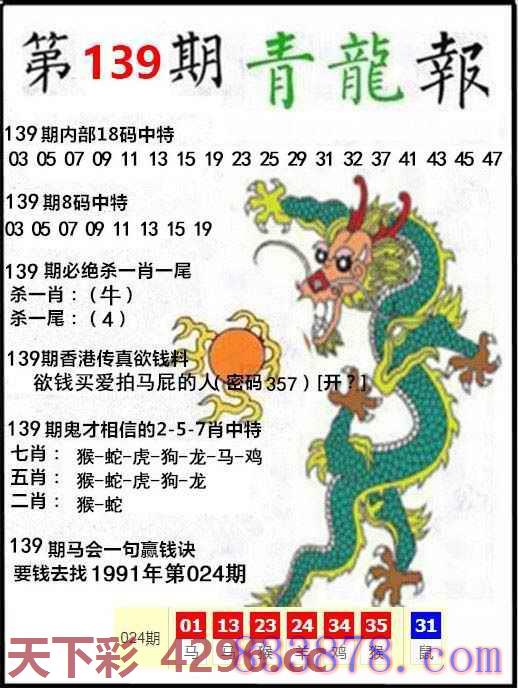 第139期青龍報
139期内部18码中特
03 05 07 09 11 13 15 19 23 25 29 31 32 37 41 43 45 47
139期8码中特
03 05 07 09 11 13 15 19
139期必绝杀一肖一尾
杀一肖：（牛）
杀一尾：（4）
139期香港传真欲钱料
欲钱买爱拍马屁的人（密码357）[开？]
139期鬼才相信的2-5-7肖中特
七肖：猴-蛇-虎-狗-龙-马-鸡
五肖：猴-蛇-虎-狗-龙
二肖：猴-蛇
139期马会一句赢钱诀
要钱去找1991年第024期
01 13 23 24 34 35 31
024期 马 马 猴 羊 鸡 猴 鼠
天下彩 4296.cc